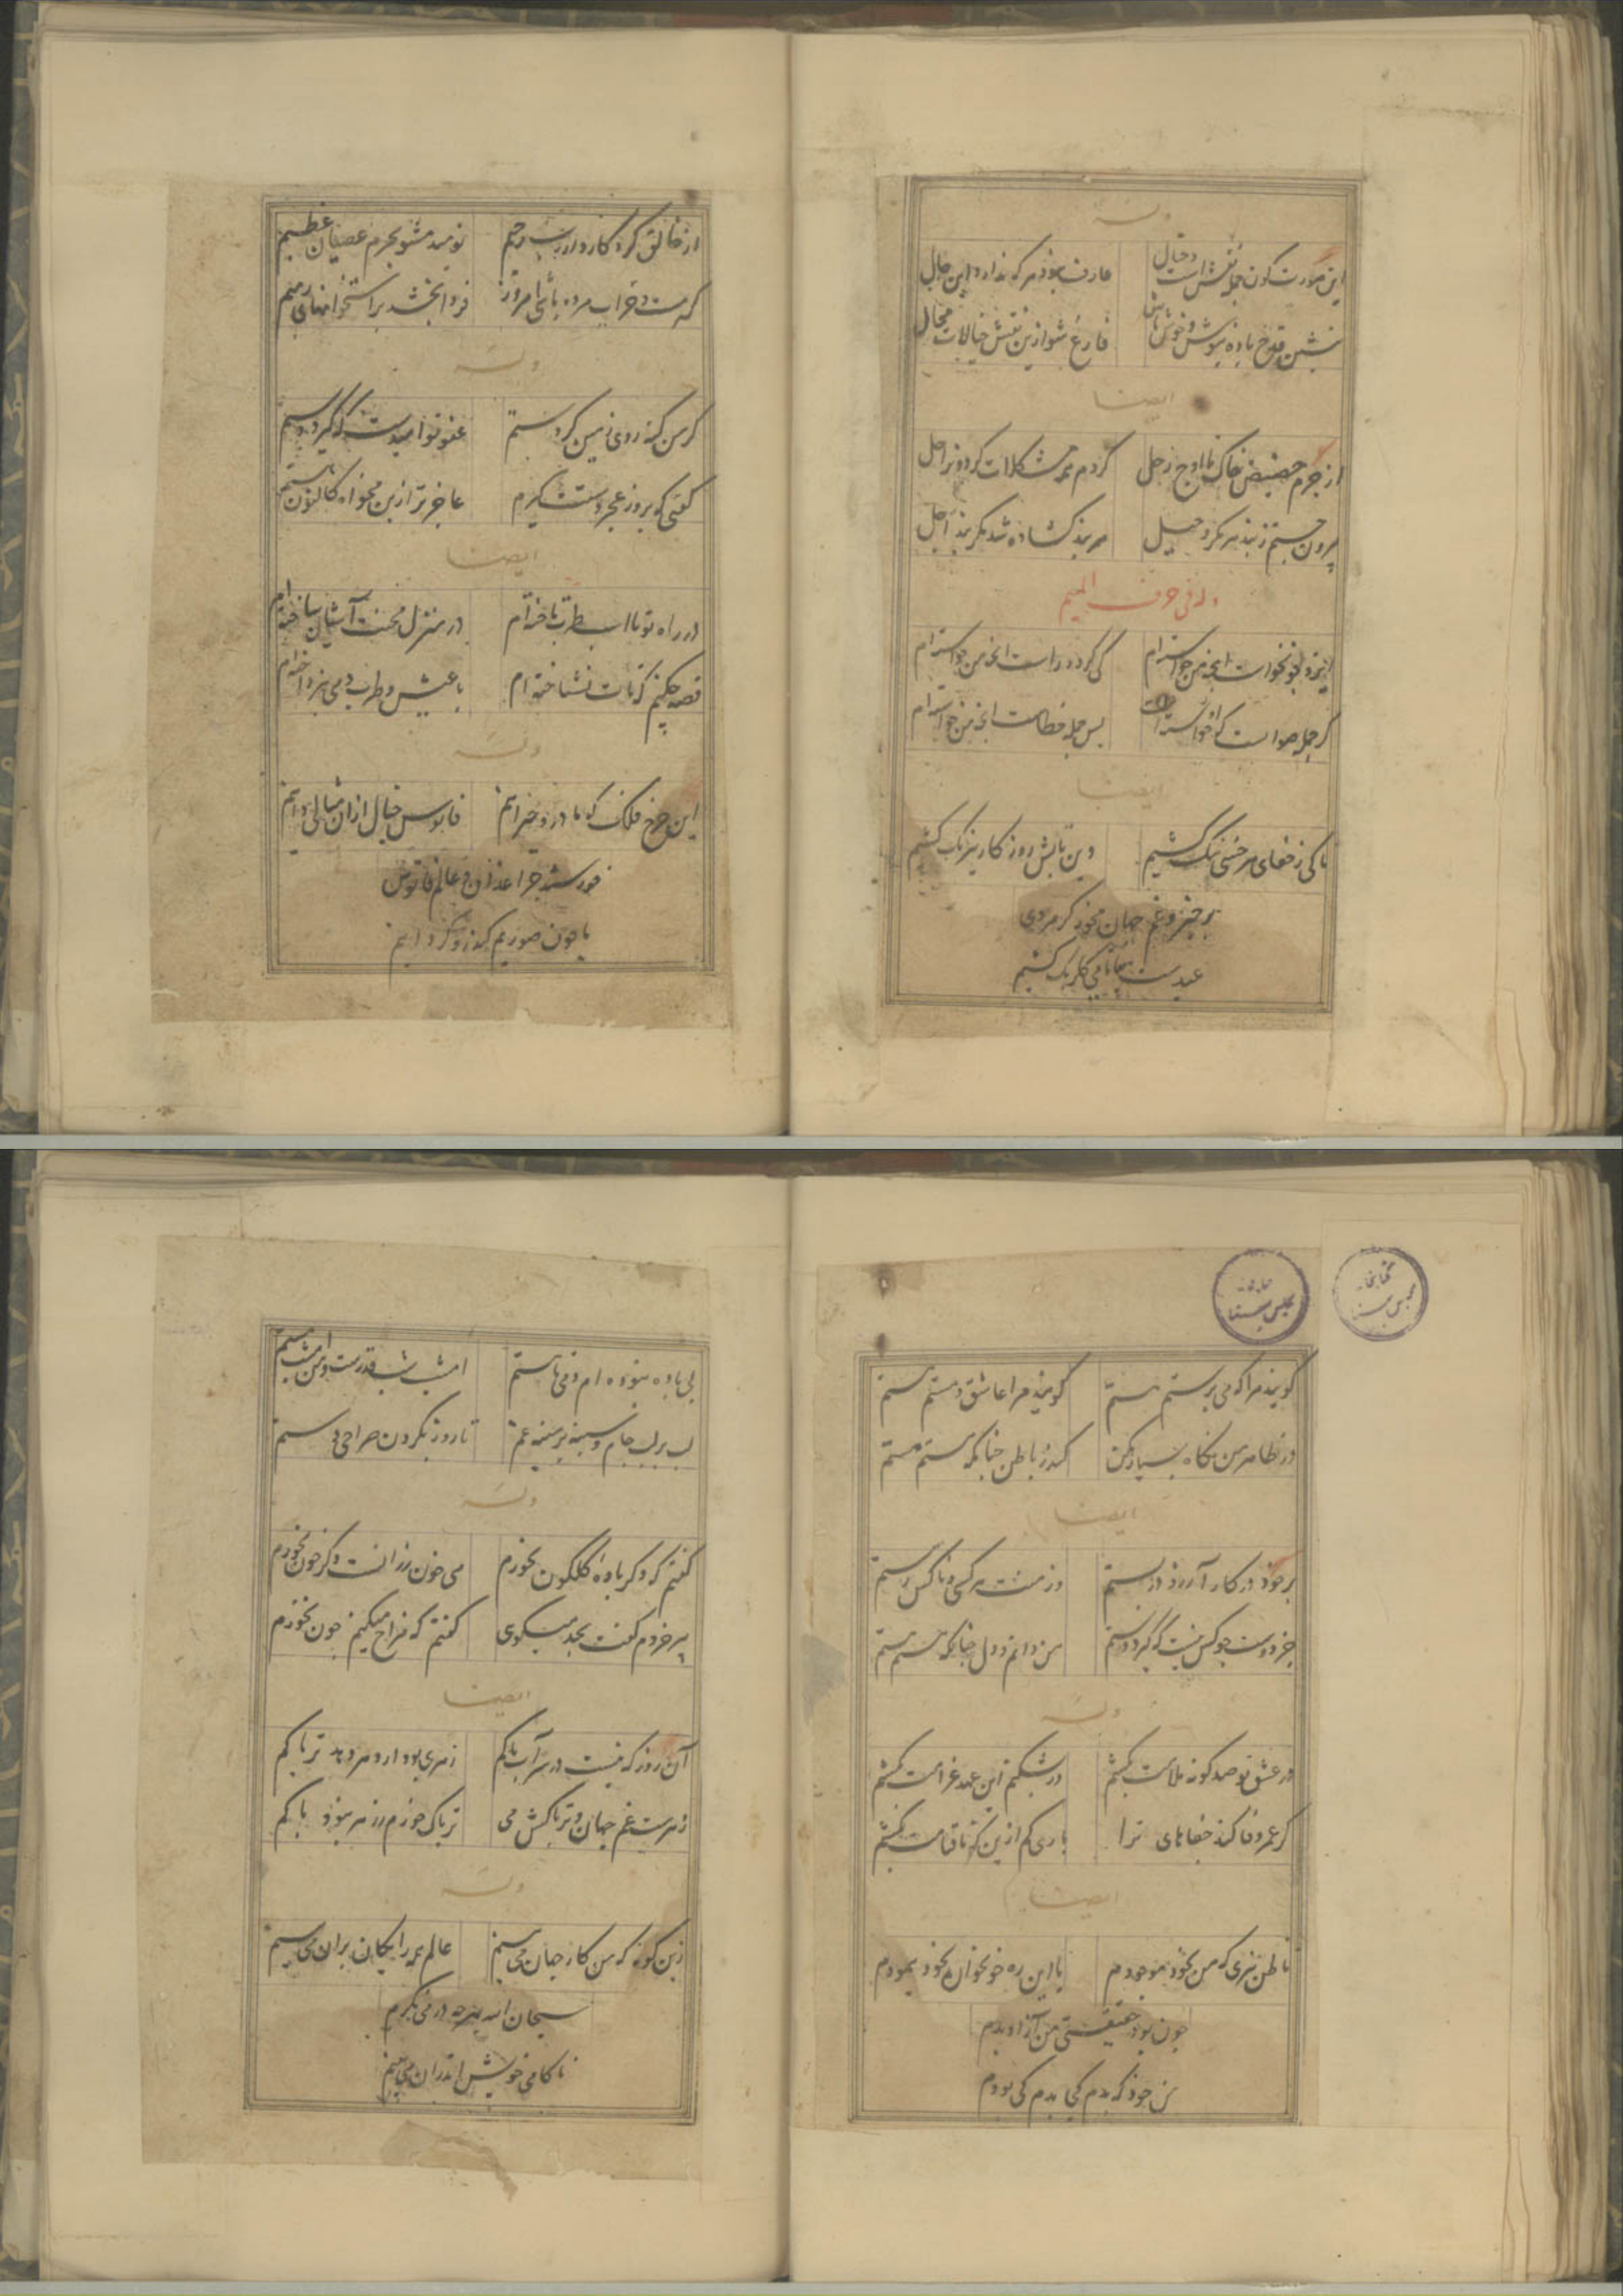 وله
این صورت کون جمله نقش است و خیال
عارف نبود هر که نداند این حال
بنشین قدح باده بنوش و خوش باش
فارغ شو ازین نقش خیالات محال
ایضا
از جرم حضیض خاک تا اوج زحل
کردم همه مشکلات گردون را حل
بیرون جستم ز بند هر مکر و حیل
هر بند گشاده شد مگر بند اجل
وله فی حرف المیم
ایزد چو نخواست آنچه من خواسته‌ام
کی گردد راست آنچه من خواسته‌ام
گر جمله صوابست که او خواسته است
پس جمله خطاست آنچه من خواسته‌ام
ایضا
تا کی ز جفای هر خسی ننگ کشیم
وین تابش روزگار نیرنگ کشیم
برخیز و غم جهان مخور گر مردی
عیدست بیا تا می گلرنگ کشیم
از خالق کردگار وز رب رحیم
نومید مشو بجرم عصیان عظیم
گر مست و خراب مرده باشی امروز
فردا بخشد بر استخوانهای رمیم
وله
گر من گنه روی زمین کردستم
عفو تو امیدست که گیرد دستم
گفتی که بروز عجز دستت گیرم
عاجزتر ازین مخواه کاکنون هستم
ایضا
در راه تو تا اسب طرب تاخته‌ام
در منزل محنت آشیان ساخته‌ام
قصه چکنم کز تات نشناخته‌ام
با عیش و طرب دمی نپرداخته‌ام
وله
این چرخ فلک که ما درو حیرانیم
فانوس خیال ازان مثالی دانیم
خورشید چراغدان و عالم فانوس
ما چون صوریم کاندرو گردانیم
گویند مرا که می پرستم هستم
گویند مرا عاشق و مستم هستم
در ظاهر من نگاه بسیار مکن
کاندر باطن چنانکه هستم هستم
ایضا
بر خود در کار آرزو در بستم
وز منت هر کس و ناکس رستم
جز دوست چو کس نیست که گیرد دستم
من دانم و دل چنانکه هستم هستم
وله
در عشق تو صد گونه ملامت بکشم
ور بشکنم این عهد غرامت بکشم
گر عمر وفا کند جفاهای ترا
باری کم ازین که تا قیامت بکشم
ایضا
تا ظن نبری که من بخود موجودم
یا این ره خونخواره بخود پیمودم
چون بود حقیقتی من آزاد بدم
من خود که بدم کی بدم کی بودم
بی باده نبوده‌ام دمی تا هستم
امشب شب قدرست و من امشب مستم
لب بر لب جام و سینه بر سینه خم
تا روز بگردن صراحی دستم
وله
گفتم که دگر باده گلگون نخورم
می خون رزانست دگر خون نخورم
پیر خردم گفت بجد میگویی
گفتم که مزاح میکنم چون نخورم
ایضا
آن روز که نیست در سر آب تاکم
زهری بود ار دهر دهد تریاکم
زهرست غم جهان و تریاکش می
تریاک خورم ز زهر نبود باکم
وله
زین گونه که من کار جهان می بینم
عالم همه رایگان بران می بینم
سبحان الله بهرچه در می نگرم
ناکامی خویش اندران می بینم
کتابخانه مجلس سنا